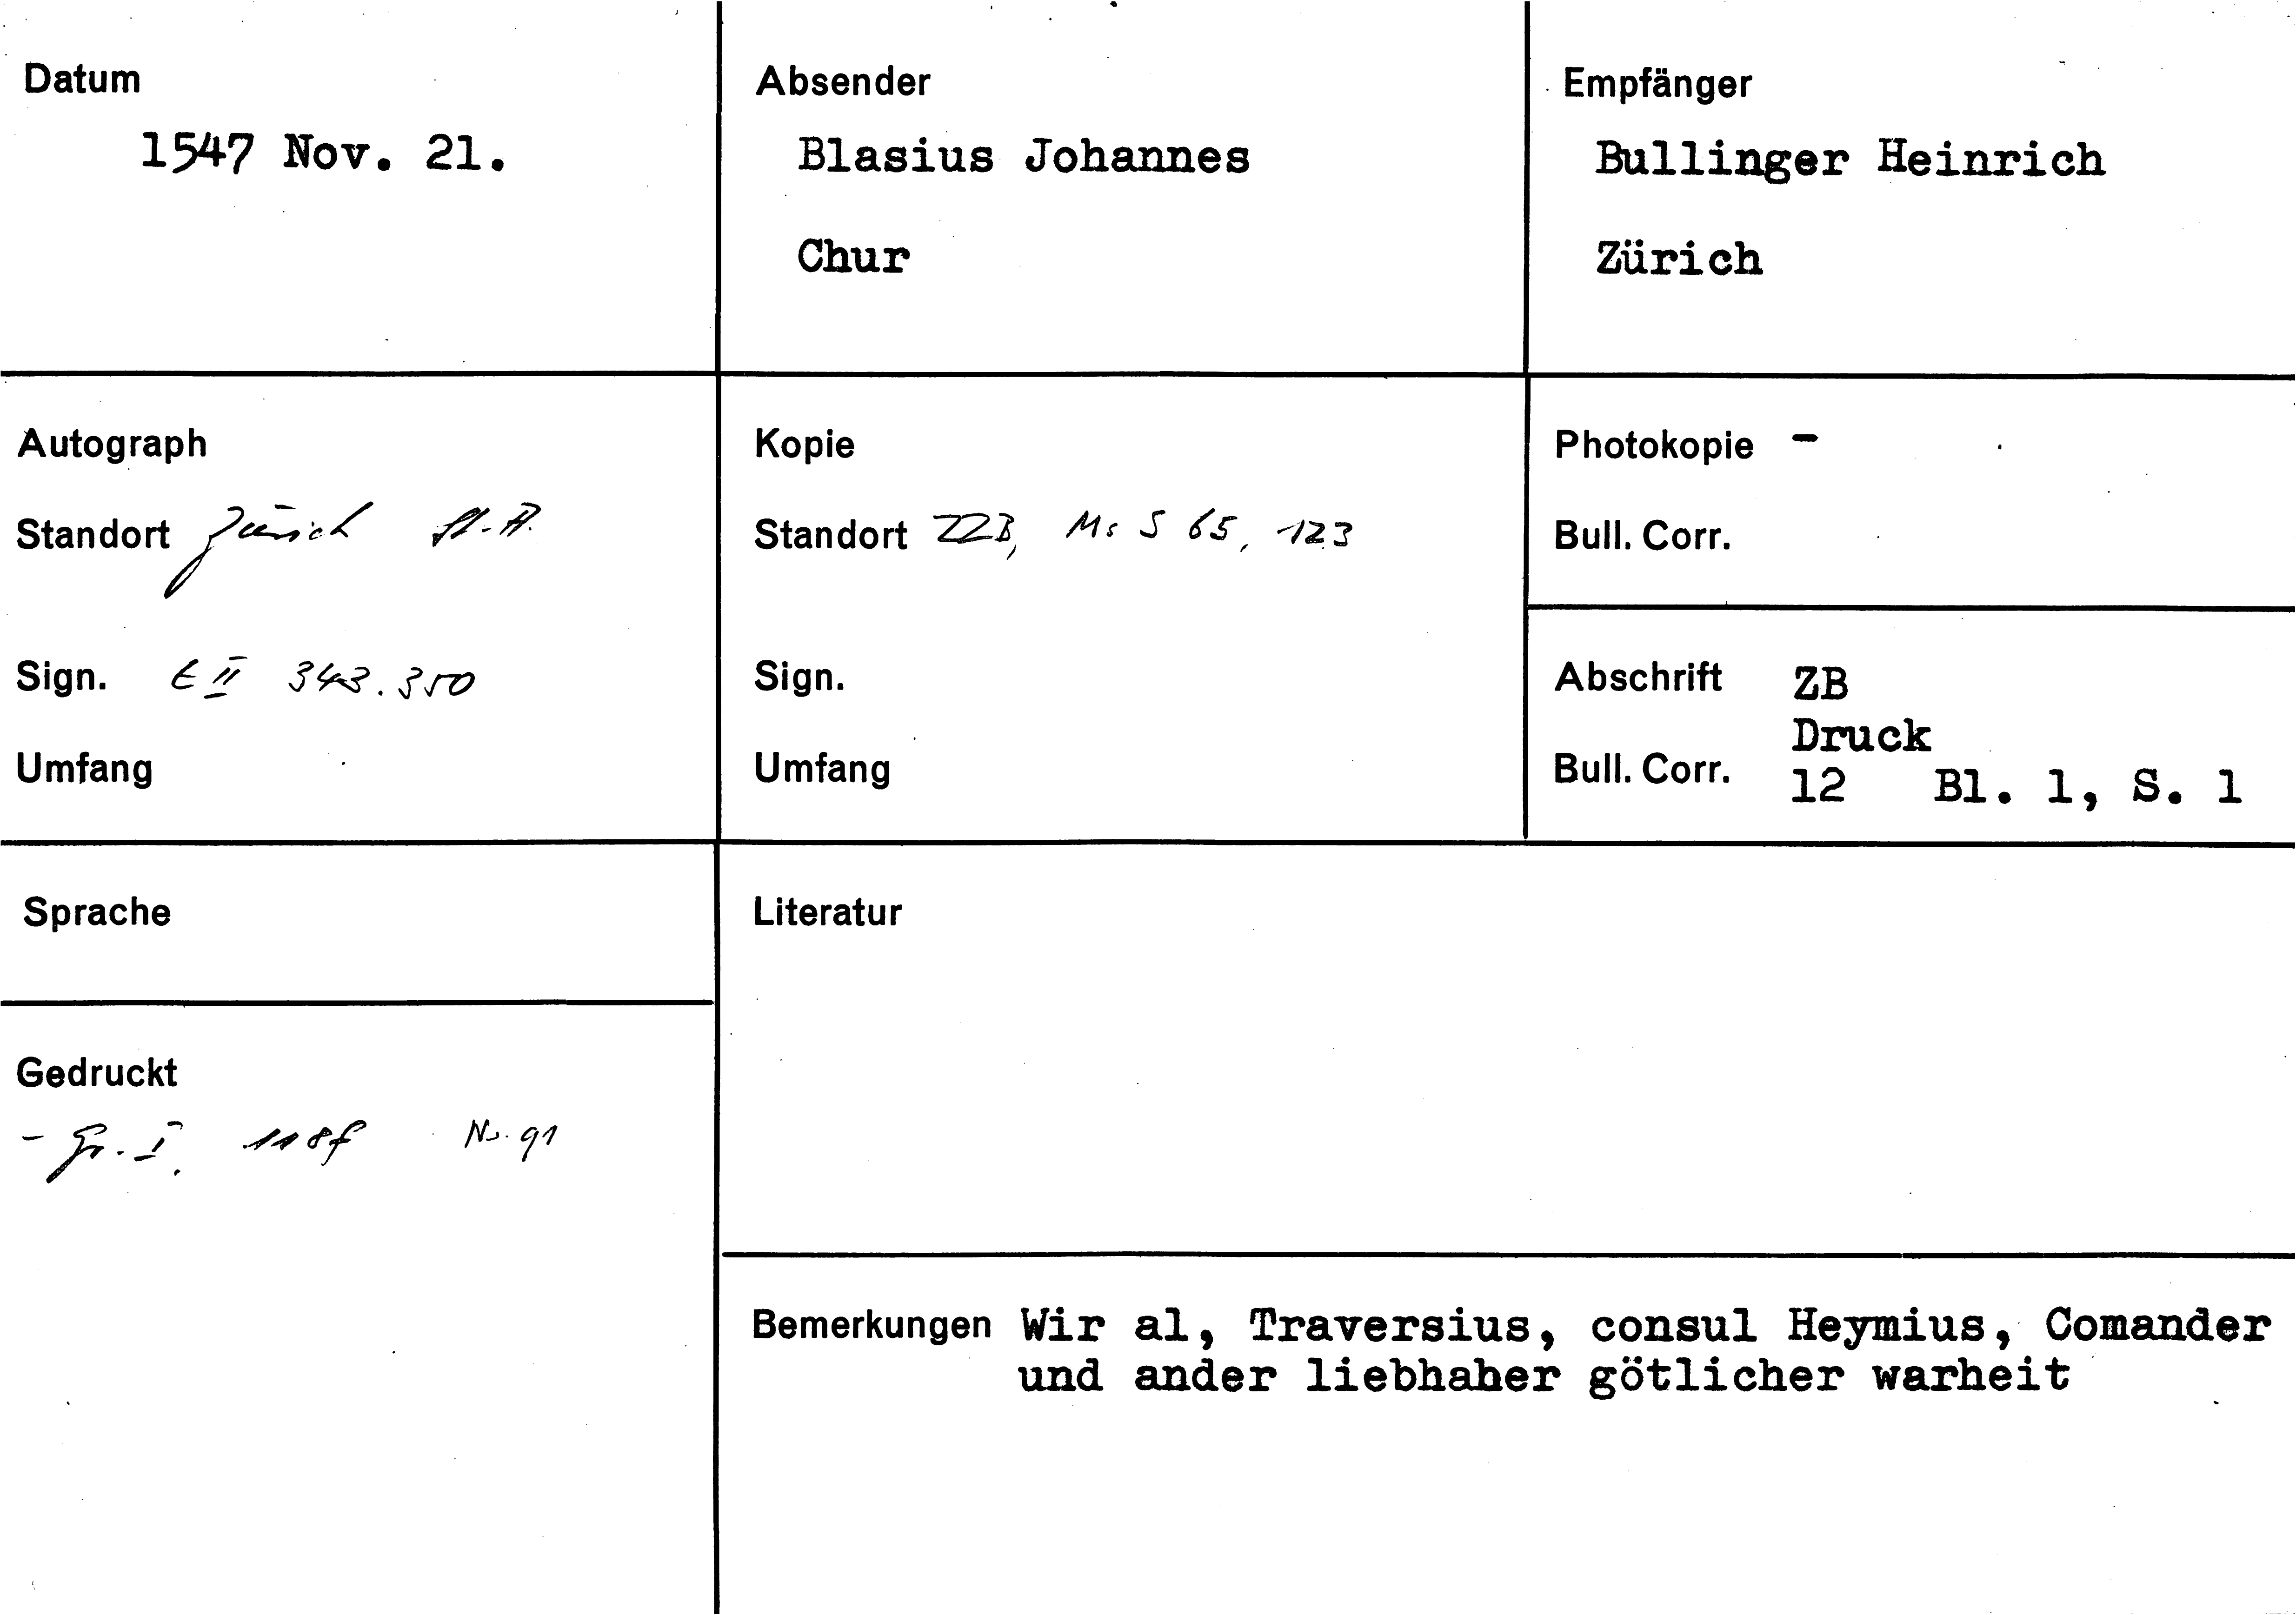 Datum
1547 Nov. 21.
Absender
Blasius Johannes
Chur
Empfänger
Bullinger Heinrich
Zürich
Autograph
Standort Zürich St.A.
Sign. E II 343.350
Umfang
Kopie
Standort ZZB, Ms S 65, 123
Sign.
Umfang
Photokopie -
Bull. Corr.
Abschrift ZB
Druck
Bull. Corr. 12 Bl. 1, S. 1
Sprache
Gedruckt
- Gr. I. 118f No. 91
Literatur
Bemerkungen Wir al, Traversius, consul Heymius, Comander
und ander liebhaber götlicher warheit